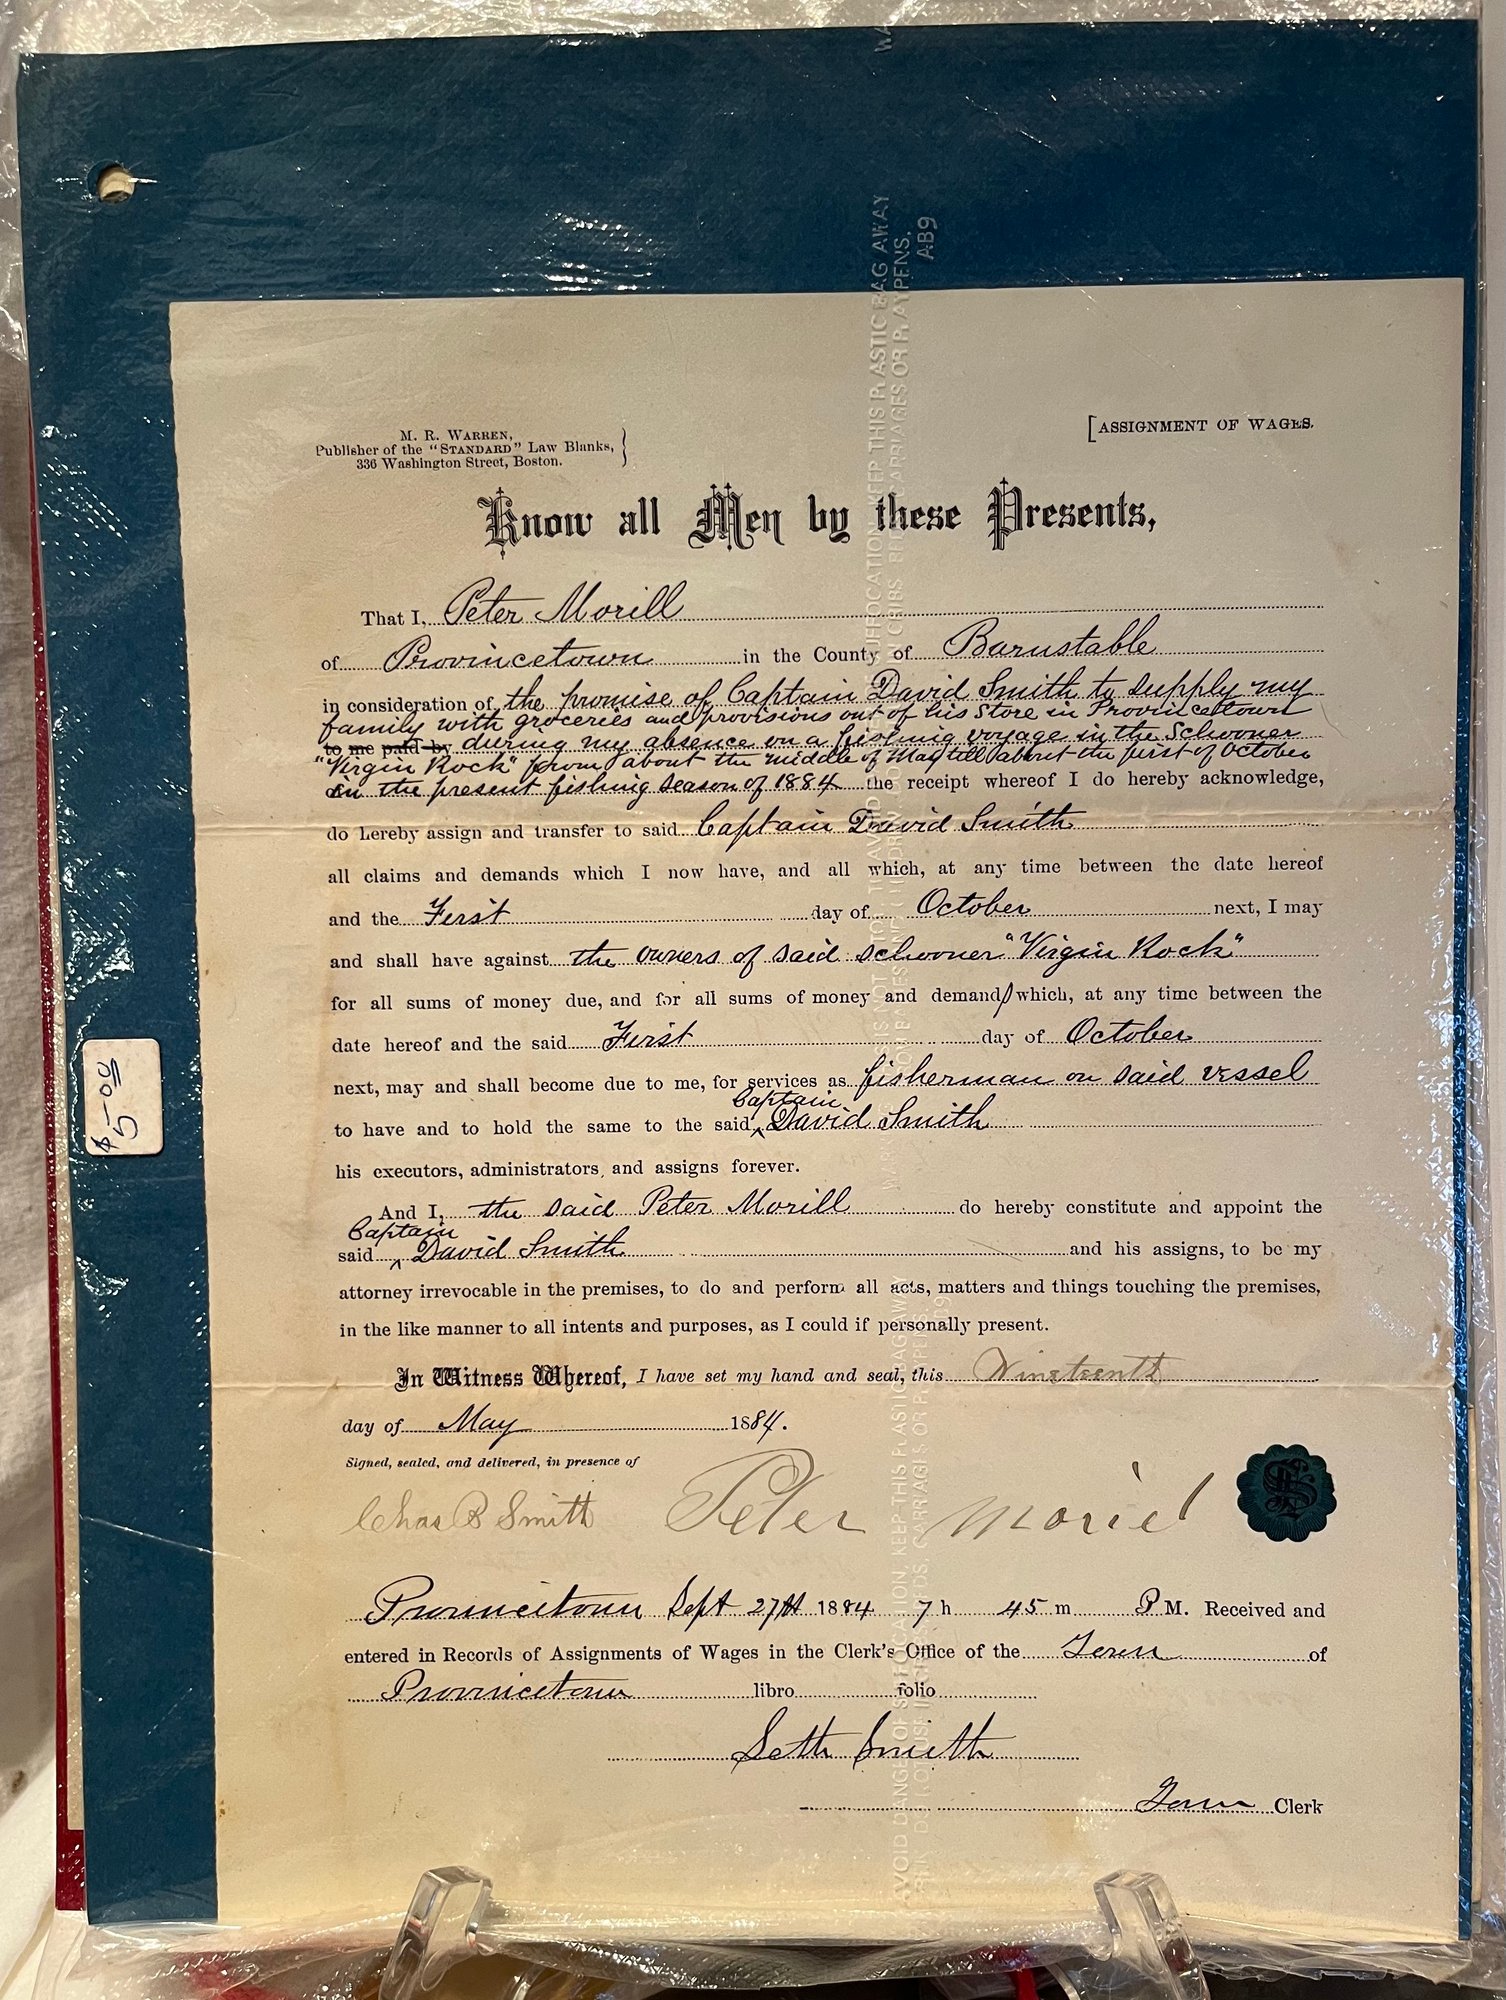 M. R. WARREN,
Publisher of the "STANDARD" Law Blanks,
336 Washington Street, Boston.
[ASSIGNMENT OF WAGES.
Know all Men by these Presents,
That I, Peter Morill
of Provincetown in the County of Barnstable
in consideration of the promise of Captain David Smith to supply my
family with groceries and provisions out of his Store in Provincetown
to me paid by during my absence on a fishing voyage in the Schooner
"Virgin Rock" from about the middle of May till about the first of October
in the present fishing season of 1884 the receipt whereof I do hereby acknowledge,
do hereby assign and transfer to said Captain David Smith
all claims and demands which I now have, and all which, at any time between the date hereof
and the First day of October next, I may
and shall have against the owners of said schooner "Virgin Rock"
for all sums of money due, and for all sums of money and demand which, at any time between the
date hereof and the said First day of October
next, may and shall become due to me, for services as fisherman on said vessel
Captain
to have and to hold the same to the said ^ David Smith
his executors, administrators, and assigns forever.
And I, the said Peter Morill do hereby constitute and appoint the
Captain
said ^ David Smith and his assigns, to be my
attorney irrevocable in the premises, to do and perform all acts, matters and things touching the premises,
in the like manner to all intents and purposes, as I could if personally present.
In Witness Whereof, I have set my hand and seal, this Nineteenth
day of May 1884.
Signed, sealed, and delivered, in presence of
Chas B Smith Peter Moriel
Provincetown Sept 27th 1884 7 h 45 m P M. Received and
entered in Records of Assignments of Wages in the Clerk's Office of the Town of
Provincetown libro folio
Seth Smith
Town Clerk
$5-00